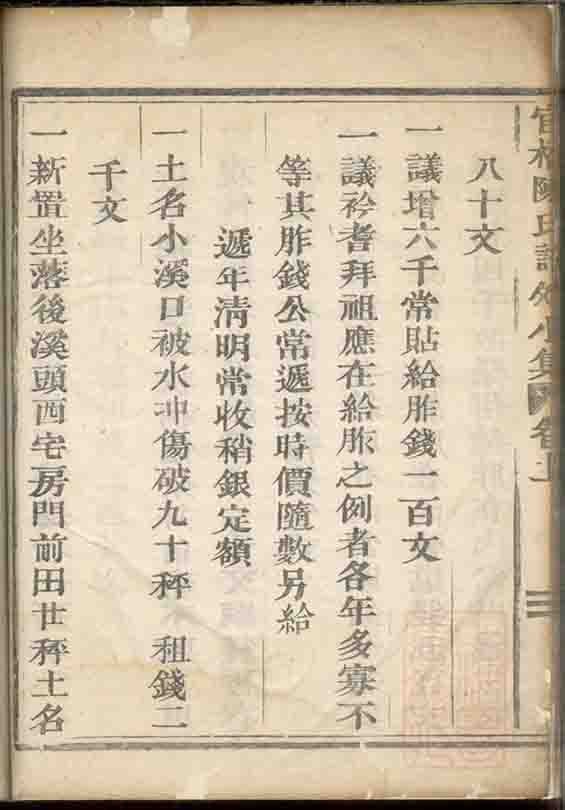 八十文
一議增六千常貼給胙錢一百文
一議衿耆拜祖應在給胙之例者各年多寡不
等其胙錢公常遞按時價隨數另給
遞年清明常收稍銀定額
一土名小溪口被水冲傷破九十秤 租錢二
千文
一新置坐落後溪頭西宅房門前田廿秤土名